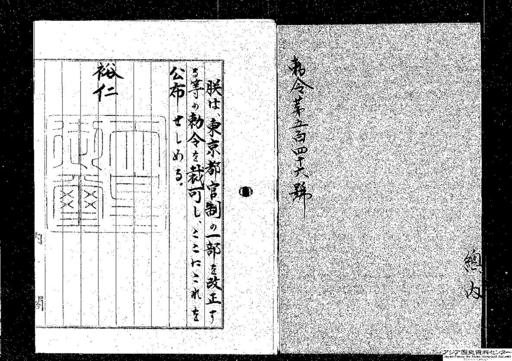 勅令第五百四十六號
總內
朕は東京都官制の一部を改正す
る等の勅令を裁可し、ここにこれを
公布せしめる。
裕仁
天皇
御璽
內閣
アジア歴史資料センター